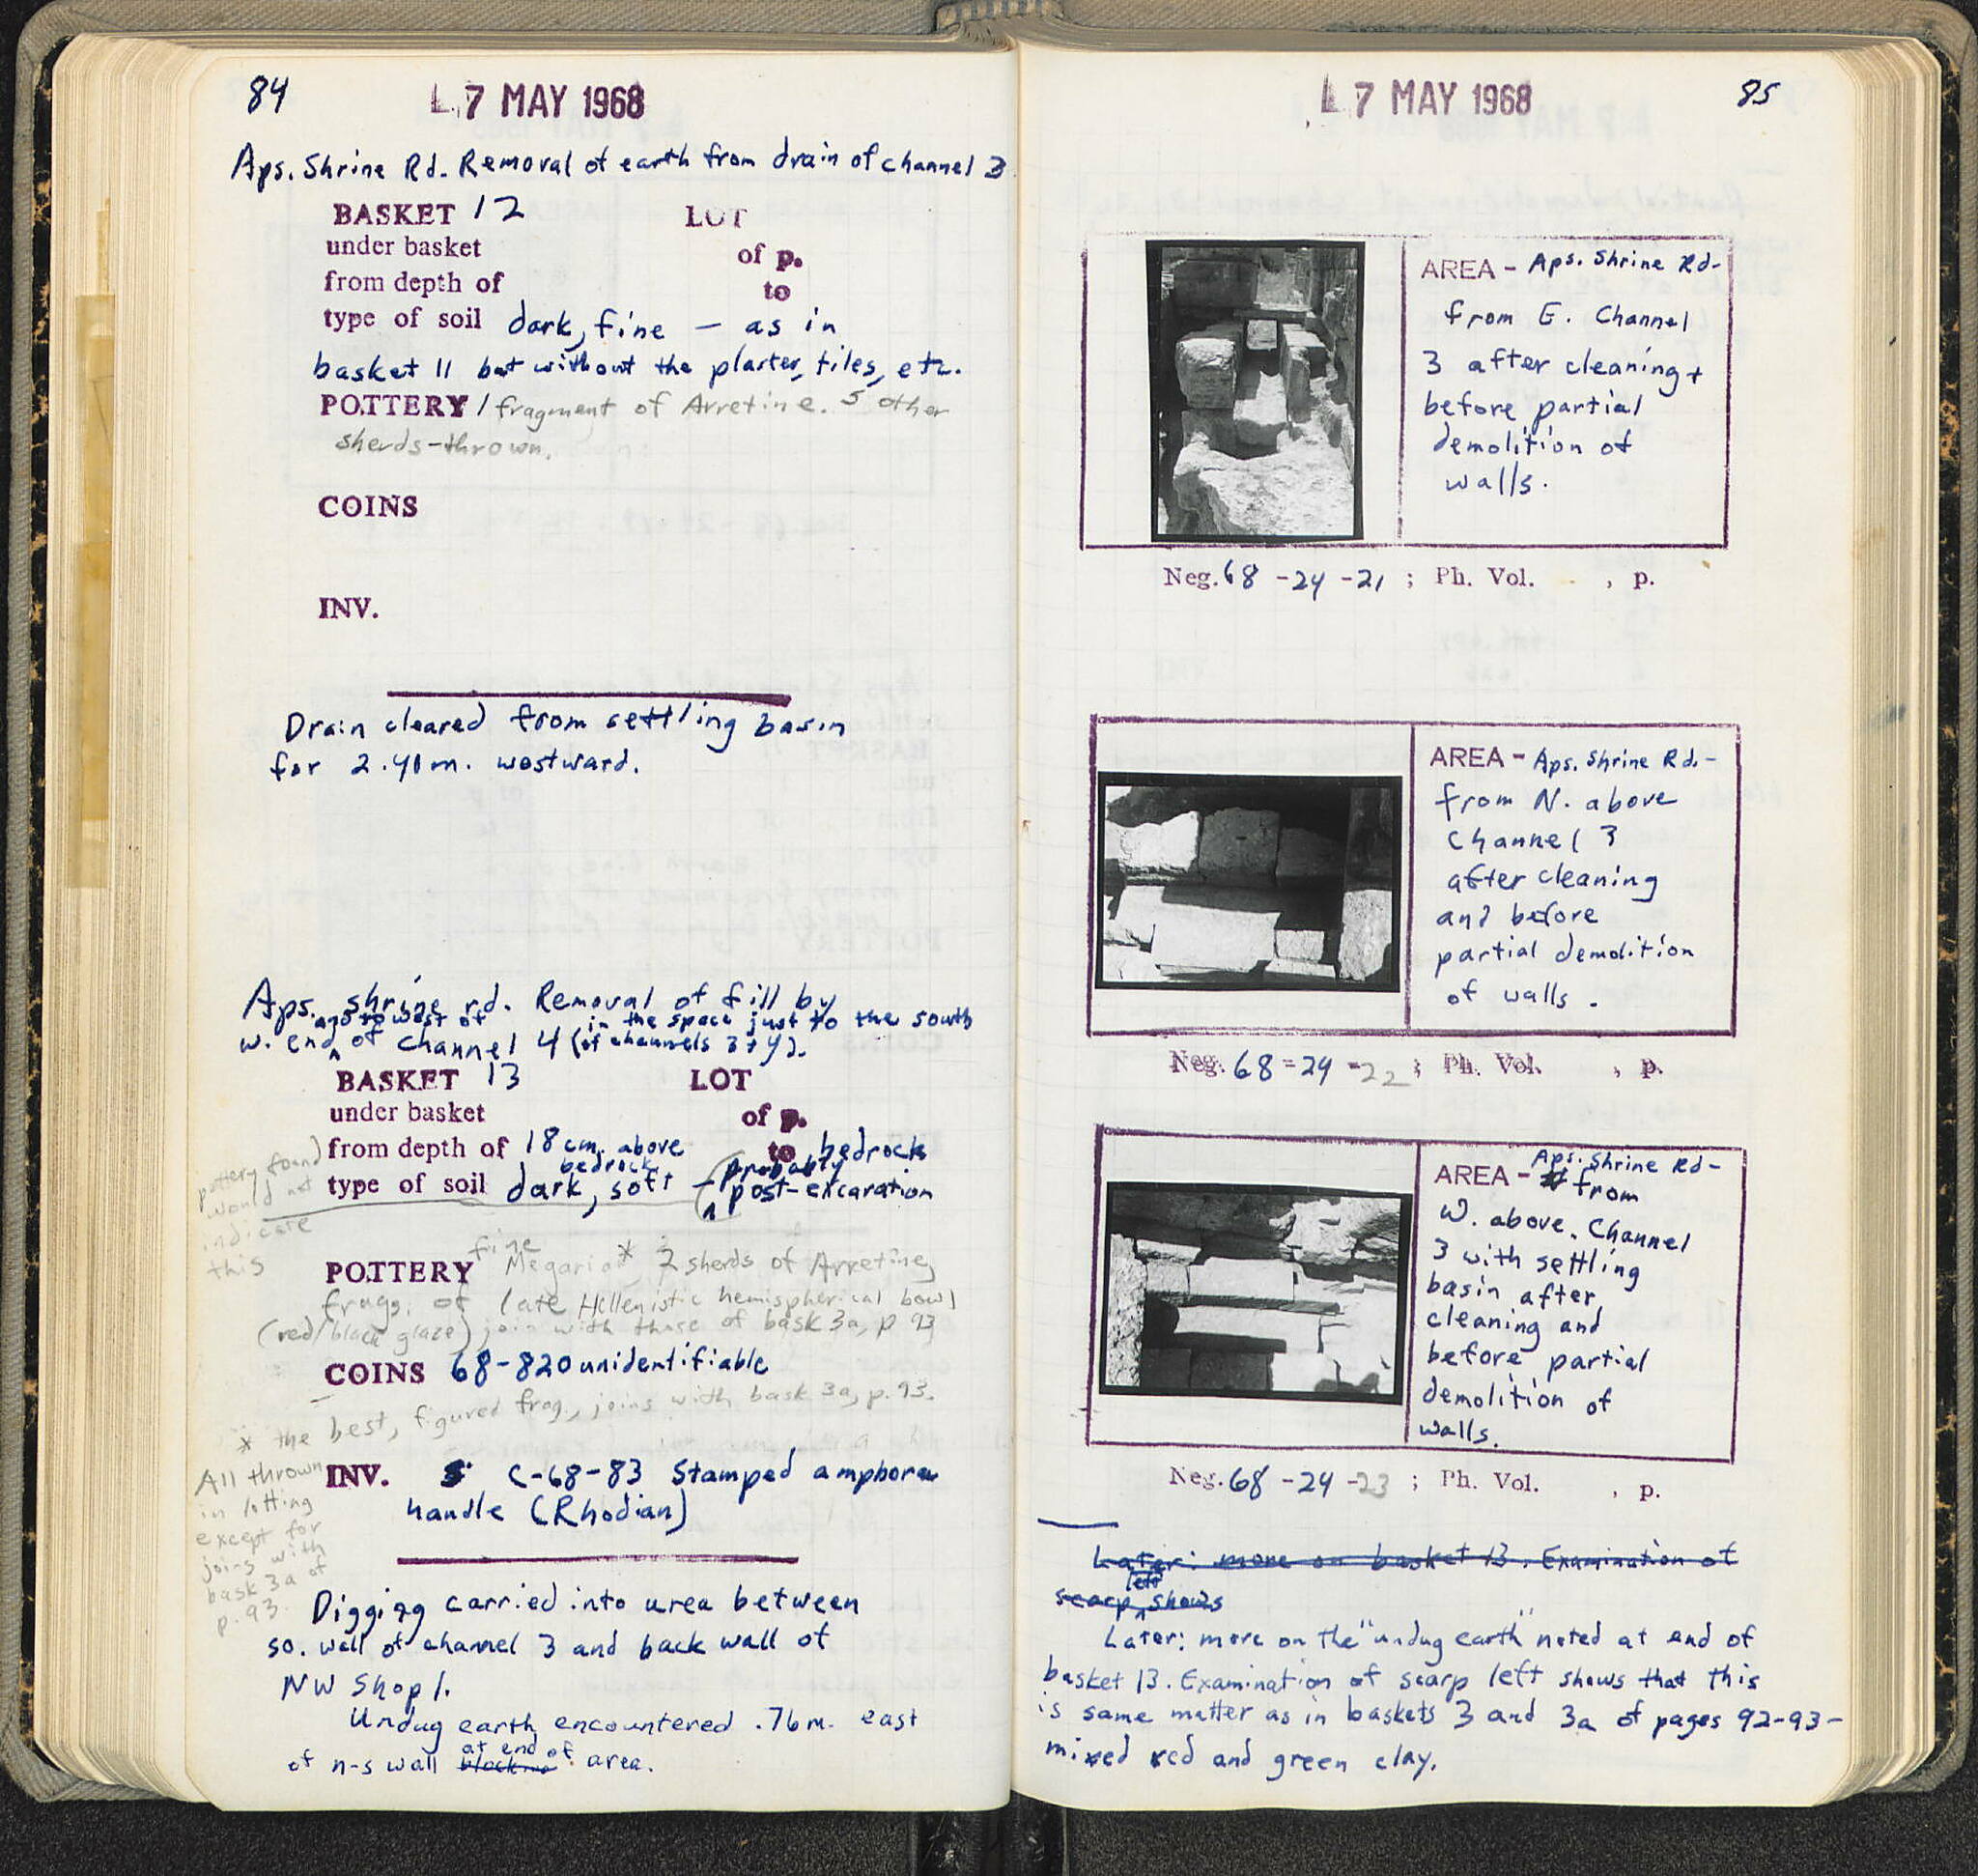 84
7 MAY 1968
Aps. Shrine Rd. Removal of earth from drain of channel 3
BASKET 12 LOT
under basket of p.
from depth of to
type of soil dark, fine — as in
basket 11 but without the plaster, tiles, etc.
POTTERY 1 fragment of Arretine. 5 other
sherds-thrown.
COINS
INV.
Drain cleared from settling basin
for 2.40m. westward.
Aps. shrine rd. Removal of fill by
and to west of in the space just to the south
w. end of channel 4 (of channels 3 + 4).
BASKET 13 LOT
under basket of p.
from depth of 18 cm. above bedrock to bedrock
type of soil dark, soft — probably post-excavation
pottery found
would not
indicate
this
POTTERY fine Megarian* 2 sherds of Arretine,
frags. of late Hellenistic hemispherical bowl
(red/black glaze) join with those of bask 3a, p 93
COINS 68-820 unidentifiable
* the best, figured frag., joins with bask 3a, p. 93.
All thrown
in lotting
except for
joins with
bask 3a of
p. 93.
INV. C-68-83 Stamped amphora
handle (Rhodian)
Digging carried into area between
so. wall of channel 3 and back wall of
NW Shop 1.
Undug earth encountered .76m. east
of n-s wall at end of area.
7 MAY 1968
85
AREA - Aps. Shrine Rd-
from E. Channel
3 after cleaning +
before partial
demolition of
walls.
Neg. 68 -24 -21 ; Ph. Vol. , p.
AREA - Aps. Shrine Rd.-
from N. above
Channel 3
after cleaning
and before
partial demolition
of walls.
Neg. 68 -24 -22 ; Ph. Vol. , p.
AREA - Aps. Shrine Rd-
from
W. above. Channel
3 with settling
basin after
cleaning and
before partial
demolition of
walls.
Neg. 68 -24 -23 ; Ph. Vol. , p.
Later: more on basket 13. Examination of
left
scarp shows
Later: more on the "undug earth" noted at end of
basket 13. Examination of scarp left shows that this
is same matter as in baskets 3 and 3a of pages 92-93-
mixed red and green clay.